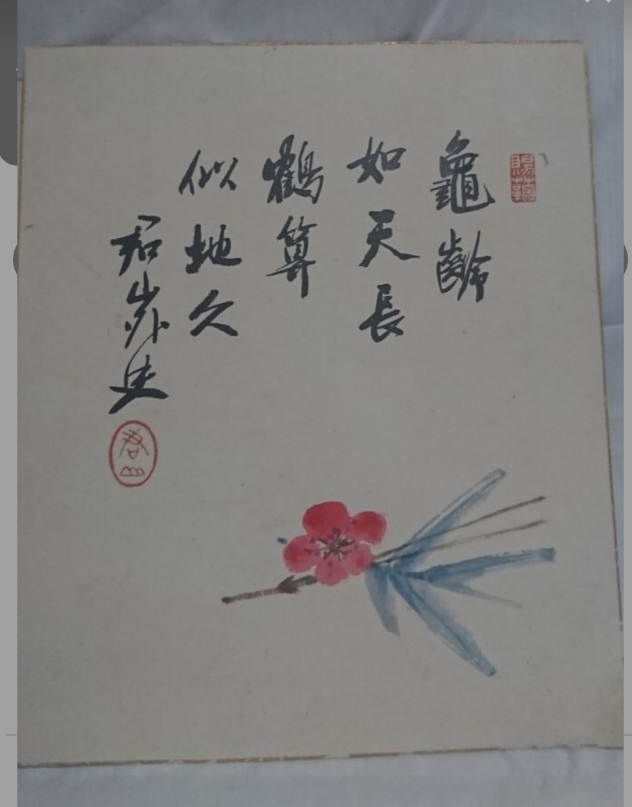 龜齡
如天長
鶴算
似地久